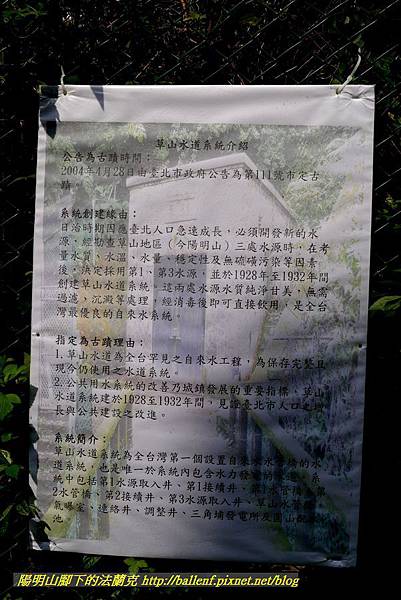 草山水道系統介紹
公告為古蹟時間：
2004年4月28日由臺北市政府公告為第111號市定古
蹟。
系統創建緣由：
日治時期因應臺北人口急速成長，必須開發新的水
源，經勘查草山地區（今陽明山）三處水源時，在考
量水質、水溫、水量、穩定性及無硫磺污染等因素
後，決定採用第1、第3水源，並於1928年至1932年間
創建草山水道系統。這兩處水源水質純淨甘美，無需
過濾，沉澱等處理，經消毒後即可直接飲用，是全台
灣最優良的自來水系統。
指定為古蹟理由：
1.草山水道為全台罕見之自來水工程，為保存完整且
現今仍使用之水道系統。
2.公共用水系統的改善乃城鎮發展的重要指標，草山
水道系統建於1928至1932年間，見證臺北市人口之成
長與公共建設之改進。
系統簡介：
草山水道系統為全台灣第一個設置自來水水管橋的水
道系統，也是唯一於系統內包含水力發電
統中包括第1水源取入井、第1接續井、第1水管橋、第
2水管橋、第2接續井、第3水源取入井、草山水管
氣曝室、連絡井、調整井、三角埔發電所及圓山
池。
陽明山腳下的法蘭克 http://ballenf.pixnet.net/blog